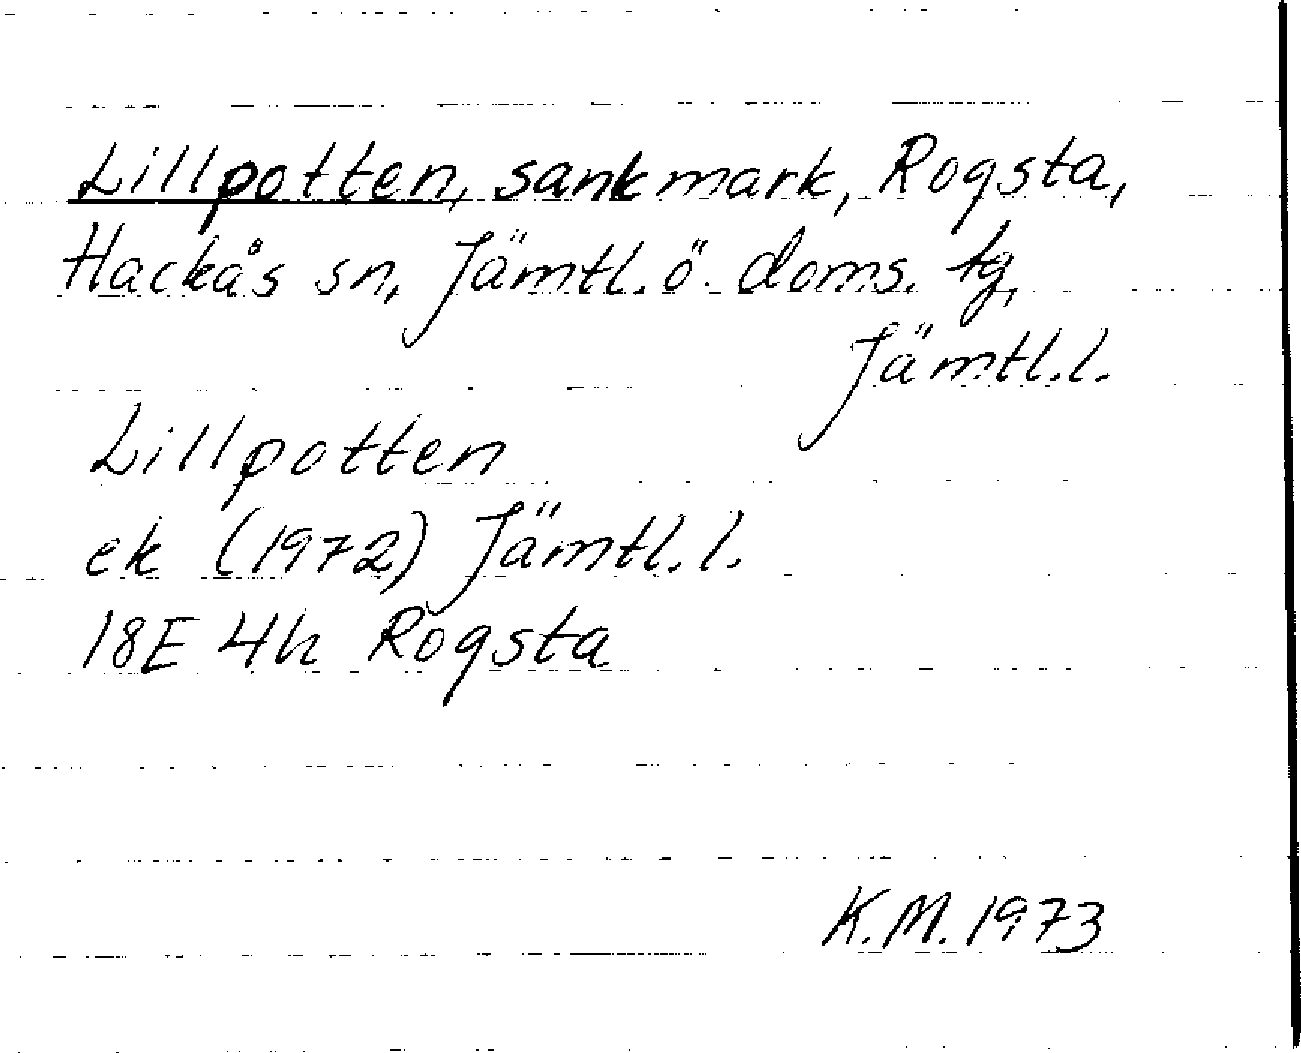 Lillpotten, sankmark, Rogsta,
Hackås sn, Jämtl. ö. doms. tg,
Jämtl. l.
Lillpotten
ek (1972) Jämtl. l.
18E 4h Rogsta
K.M. 1973